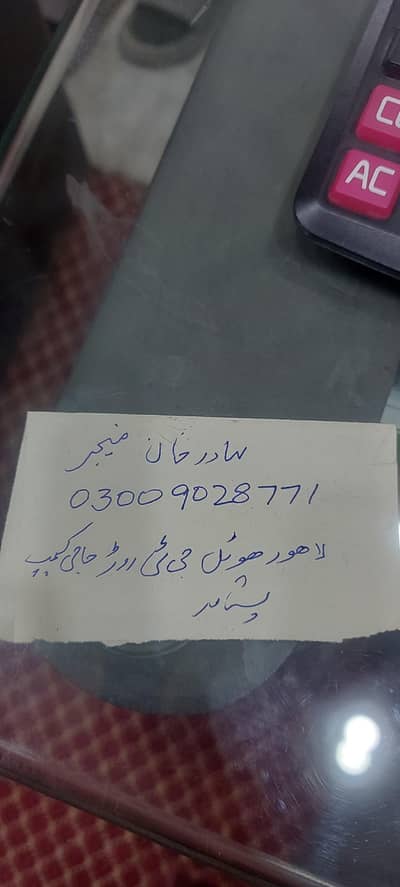 AC
بہادر خان منیجر
03009028771
لاھور ھوٹل جی ٹی روڈ حاجی کیمپ
پشاور